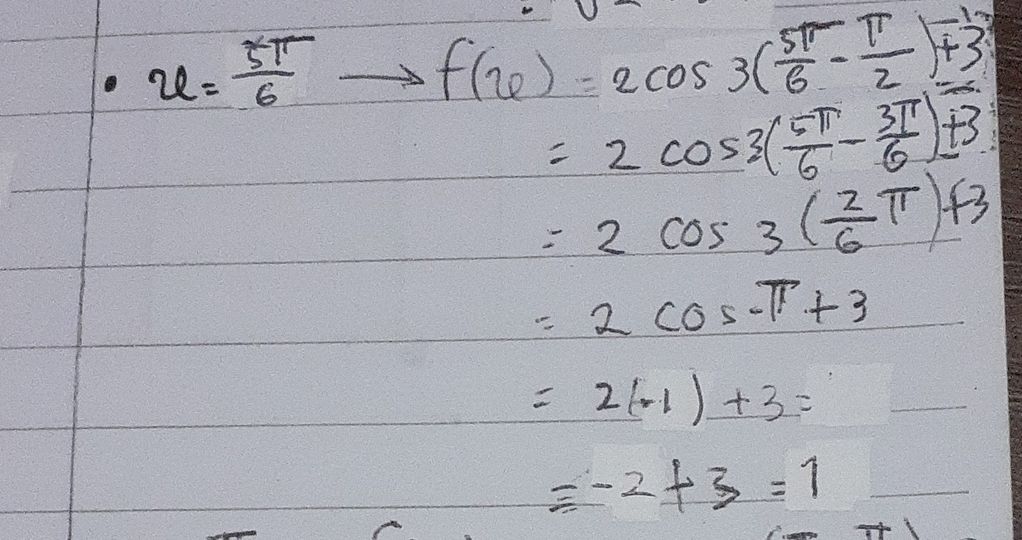 • x = 5π/6 → f(x) = 2 cos 3(5π/6 - π/2) + 3
= 2 cos 3(5π/6 - 3π/6) + 3
= 2 cos 3 (2/6 π) + 3
= 2 cos π + 3
= 2(-1) + 3 =
= -2 + 3 = 1